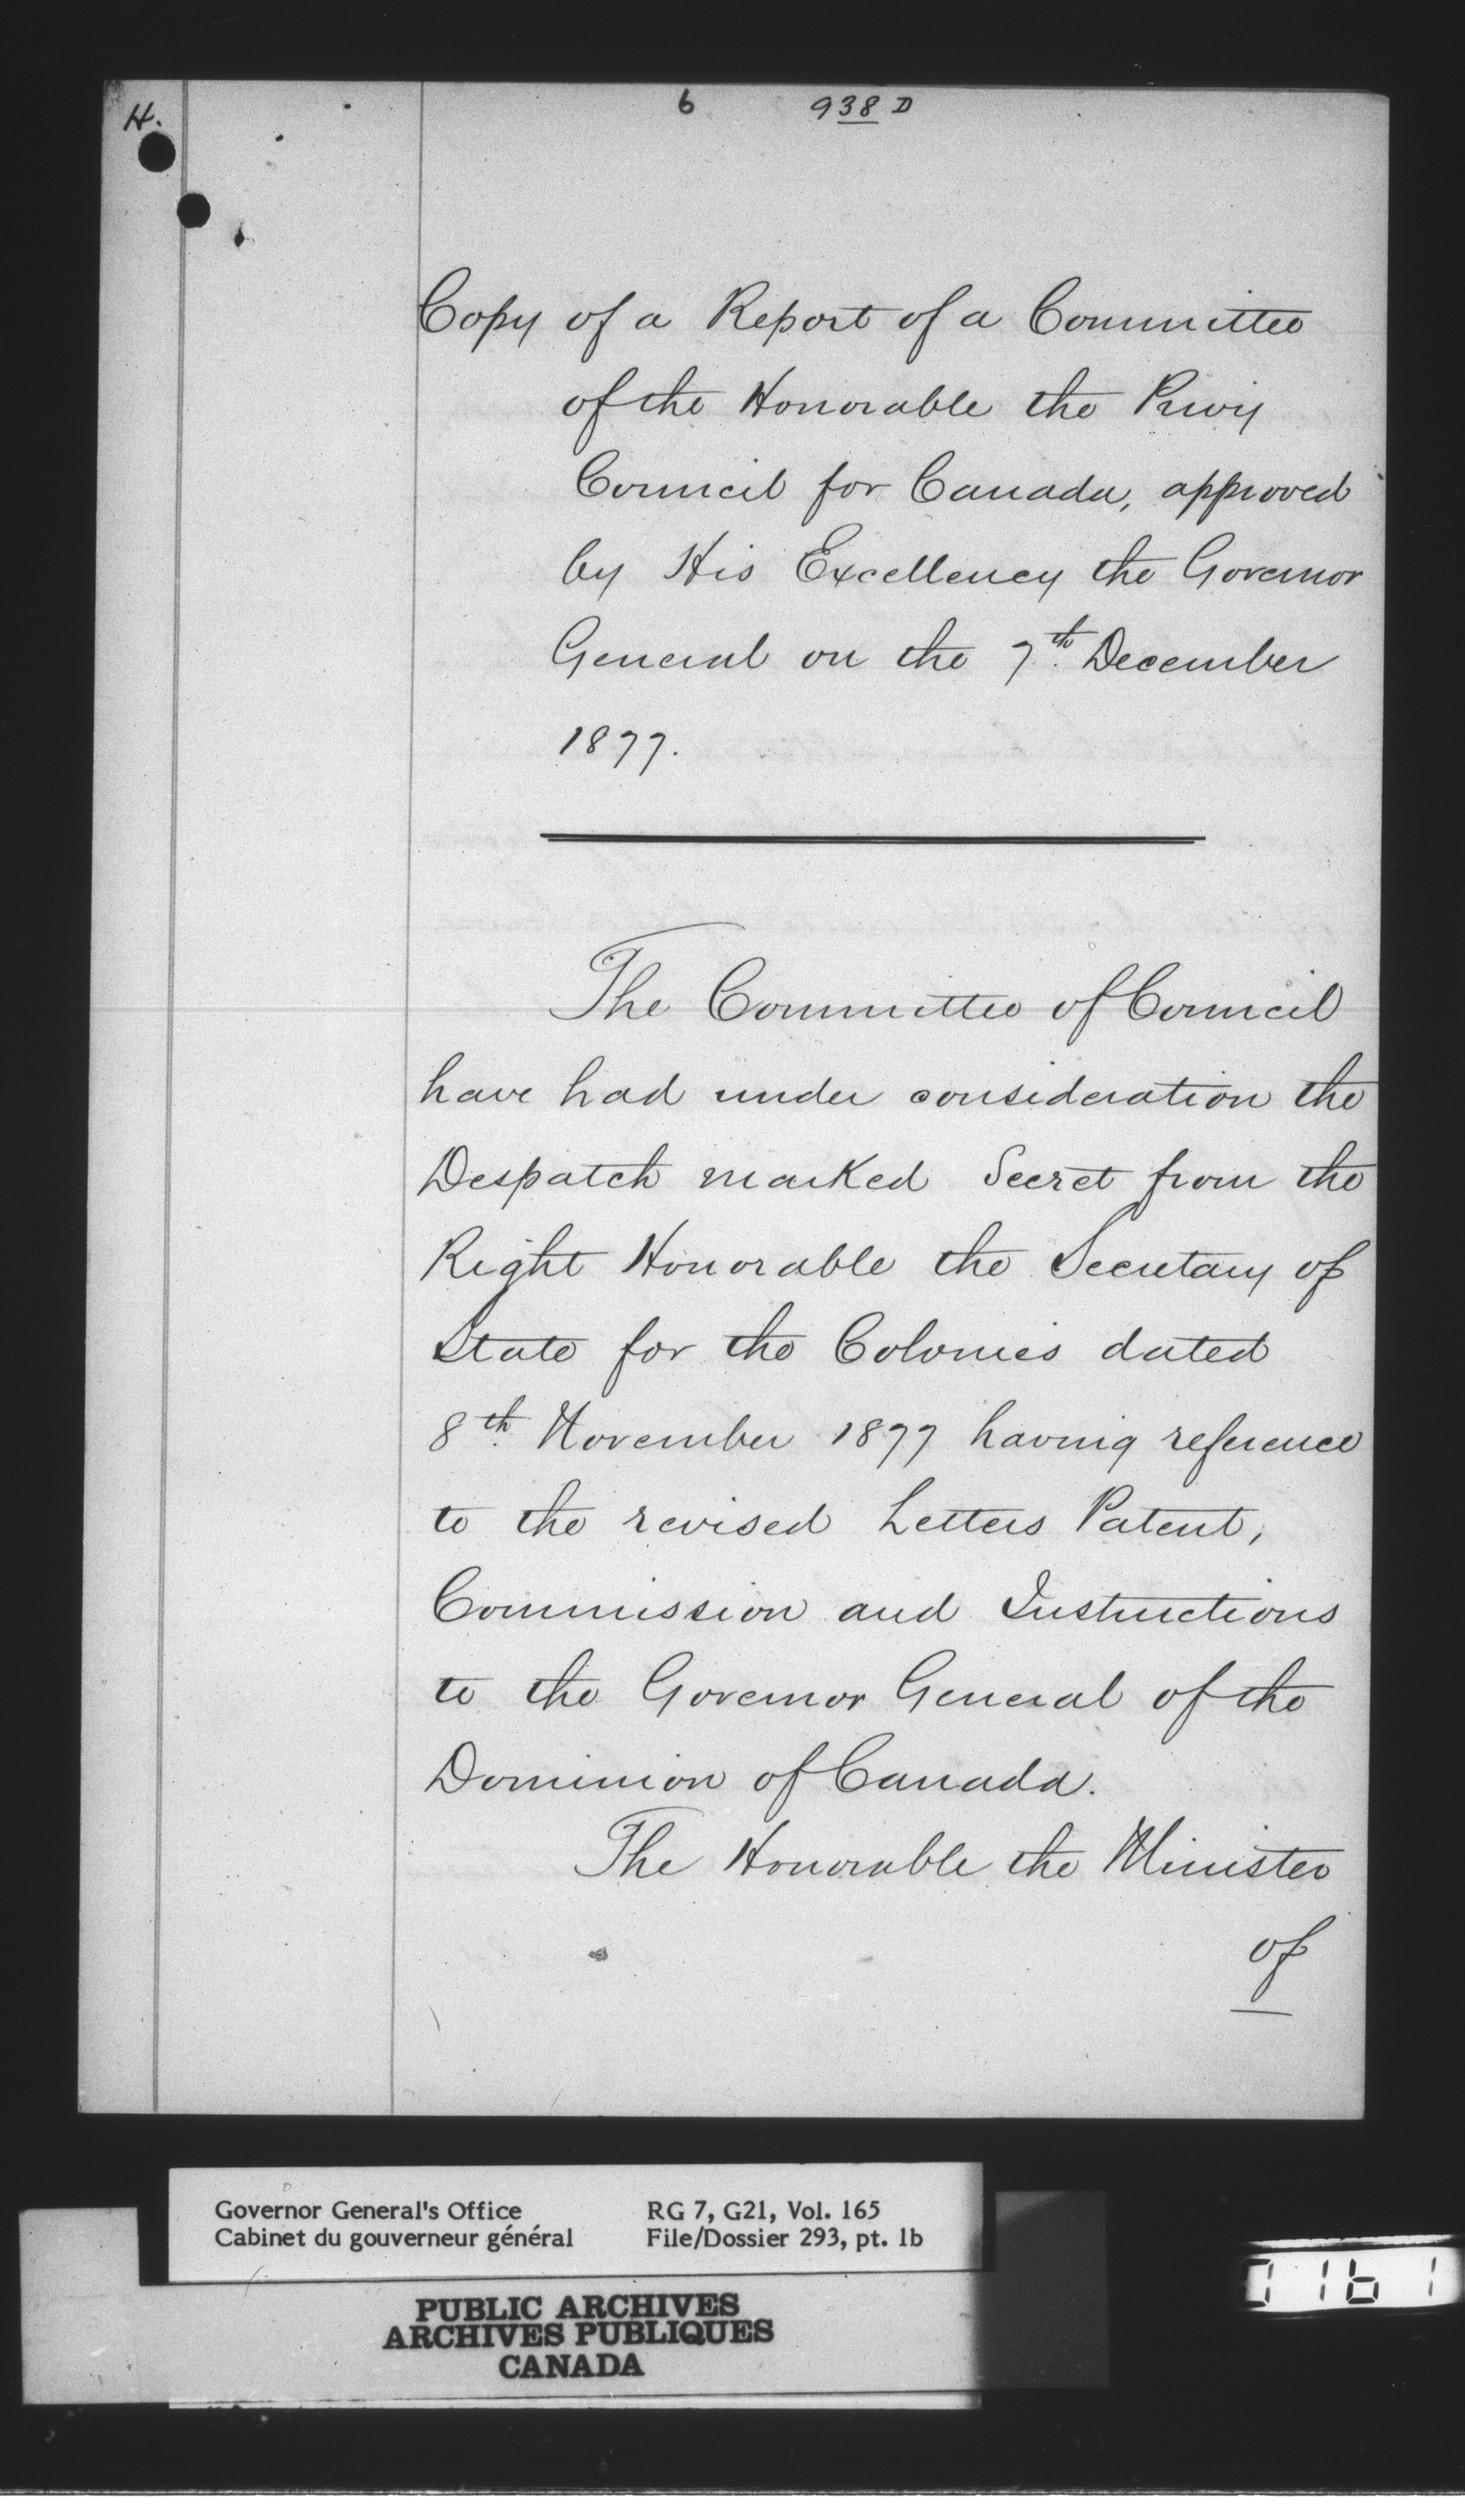 H.
6 938 D
Copy of a Report of a Committee
of the Honorable the Privy
Council for Canada, approved
by His Excellency the Governor
General on the 7th. December
1877.
The Committee of Council
have had under consideration the
Despatch marked Secret from the
Right Honorable the Secretary of
State for the Colonies dated
8th. November 1877 having reference
to the revised Letters Patent,
Commission and Instructions
to the Governor General of the
Dominion of Canada.
The Honorable the Minister
of
Governor General's Office RG 7, G21, Vol. 165
Cabinet du gouverneur général File/Dossier 293, pt. 1b
PUBLIC ARCHIVES
ARCHIVES PUBLIQUES
CANADA